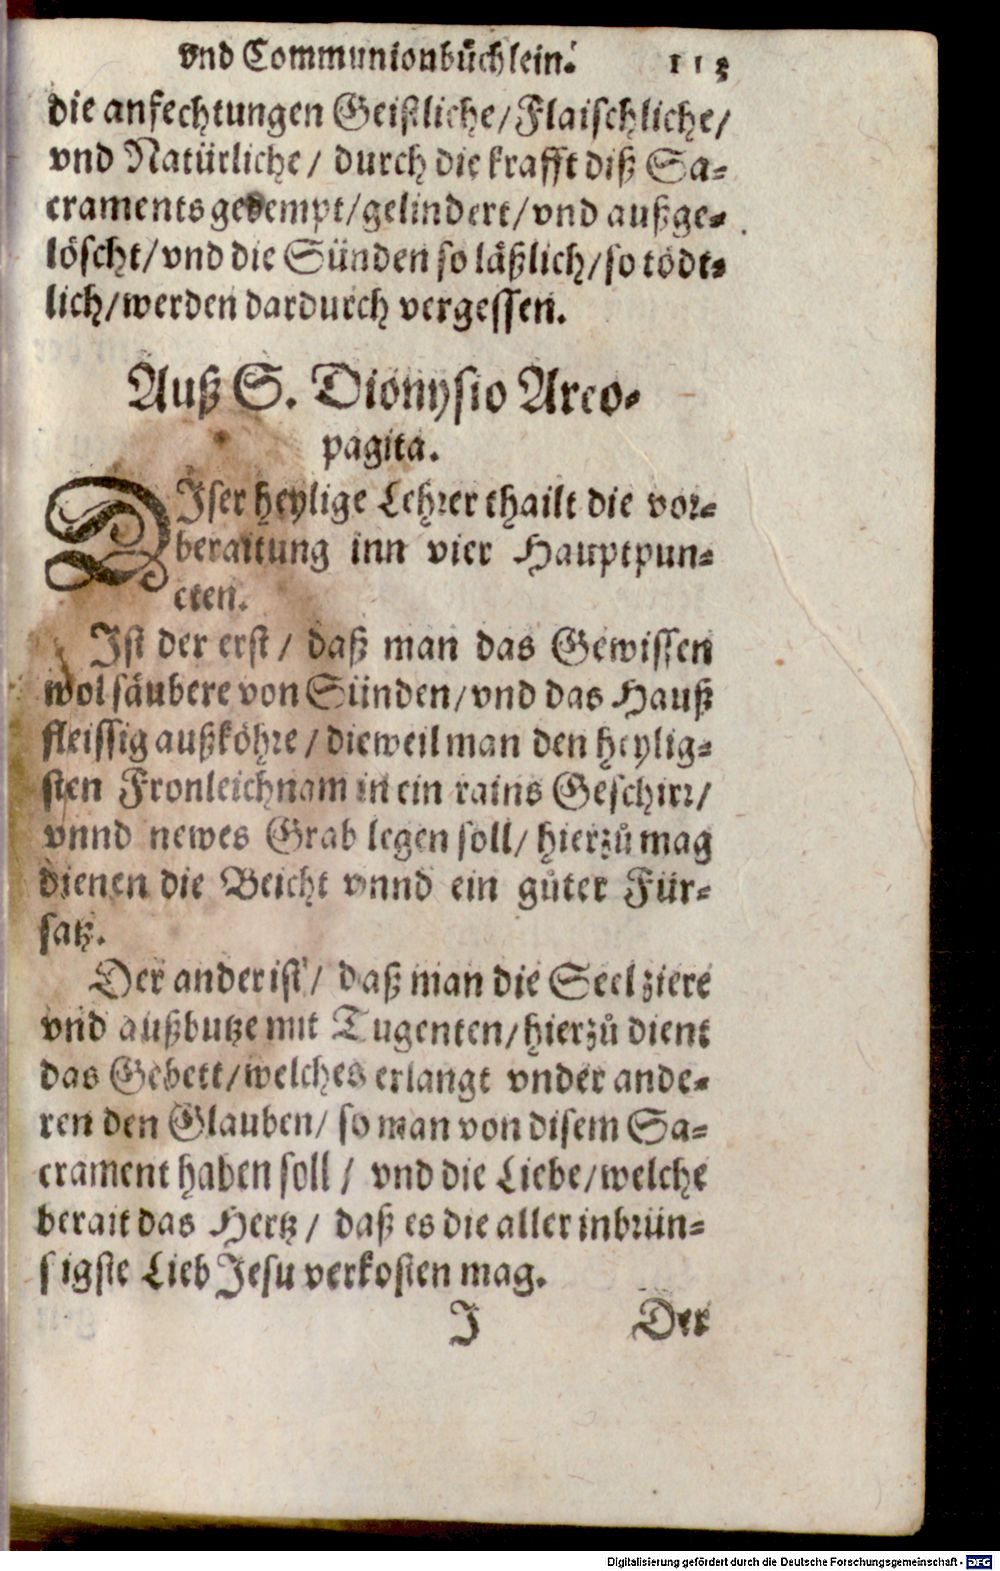 vnd Communionbuͤchlein. 113
die anfechtungen Geistliche/Flaischliche/
vnd Natürliche/ durch die krafft diß Sa-
craments gedempt/gelindert/vnd außge-
löscht/vnd die Sünden so läßlich/so tödt-
lich/werden dardurch vergessen.
Auß S. Dionysio Areo-
pagita.
DIser heylige Lehrer thailt die vor-
beraitung inn vier Hauptpun-
cten.
Ist der erst/ daß man das Gewissen
wol säubere von Sünden/vnd das Hauß
fleissig außköhre/dieweil man den heylig-
sten Fronleichnam in ein rains Geschirr/
vnnd newes Grab legen soll/ hierzuͦ mag
dienen die Beicht vnnd ein guͦter Für-
satz.
Der ander ist/ daß man die Seel ziere
vnd außbutze mit Tugenten/hierzuͦ dient
das Gebett/welches erlangt vnder ande-
ren den Glauben/ so man von disem Sa-
crament haben soll/ vnd die Liebe/welche
berait das Hertz/ daß es die aller inbrün-
stigste Lieb Jesu verkosten mag.
J Der
Digitalisierung gefördert durch die Deutsche Forschungsgemeinschaft - DFG